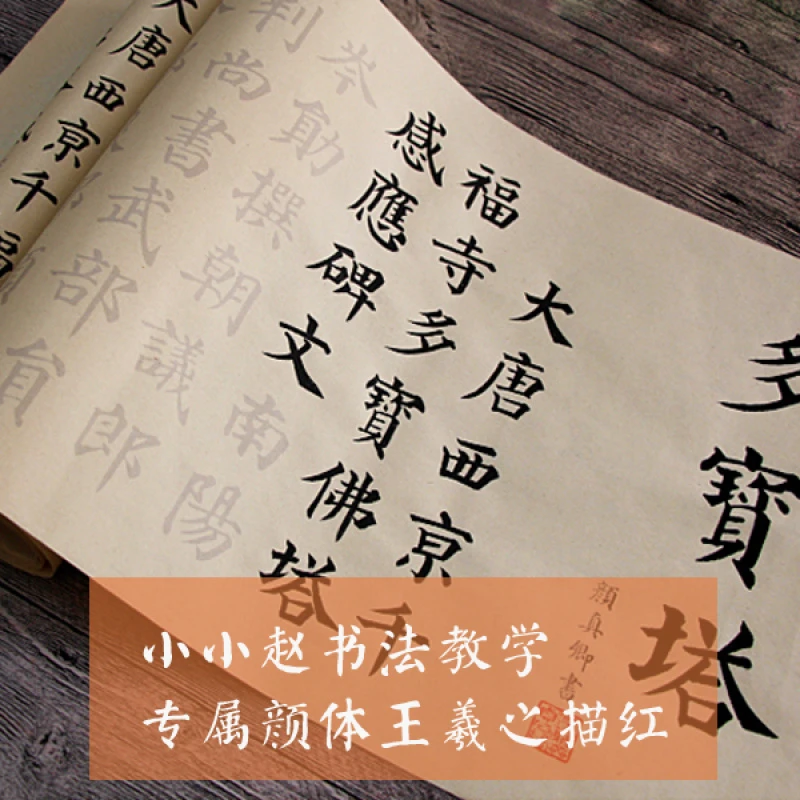 多寶塔
顏真卿書
大唐西京千
福寺多寶佛塔
感應碑文
南陽
岑勛撰朝議郎
判尚書武部員
大唐西京千福
小小赵书法教学
专属颜体王羲之描红